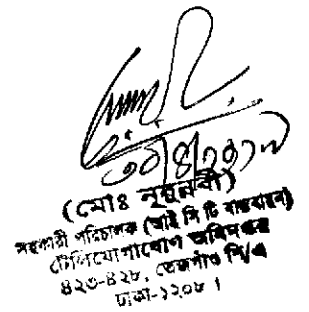 (মোঃ নূরুন্নবী)
সহকারী পরিচালক (আই সি টি বাস্তবায়ন)
টেলিযোগাযোগ অধিদপ্তর
৪২৩-৪২৮, তেজগাঁও শি/এ
ঢাকা-১২০৮।